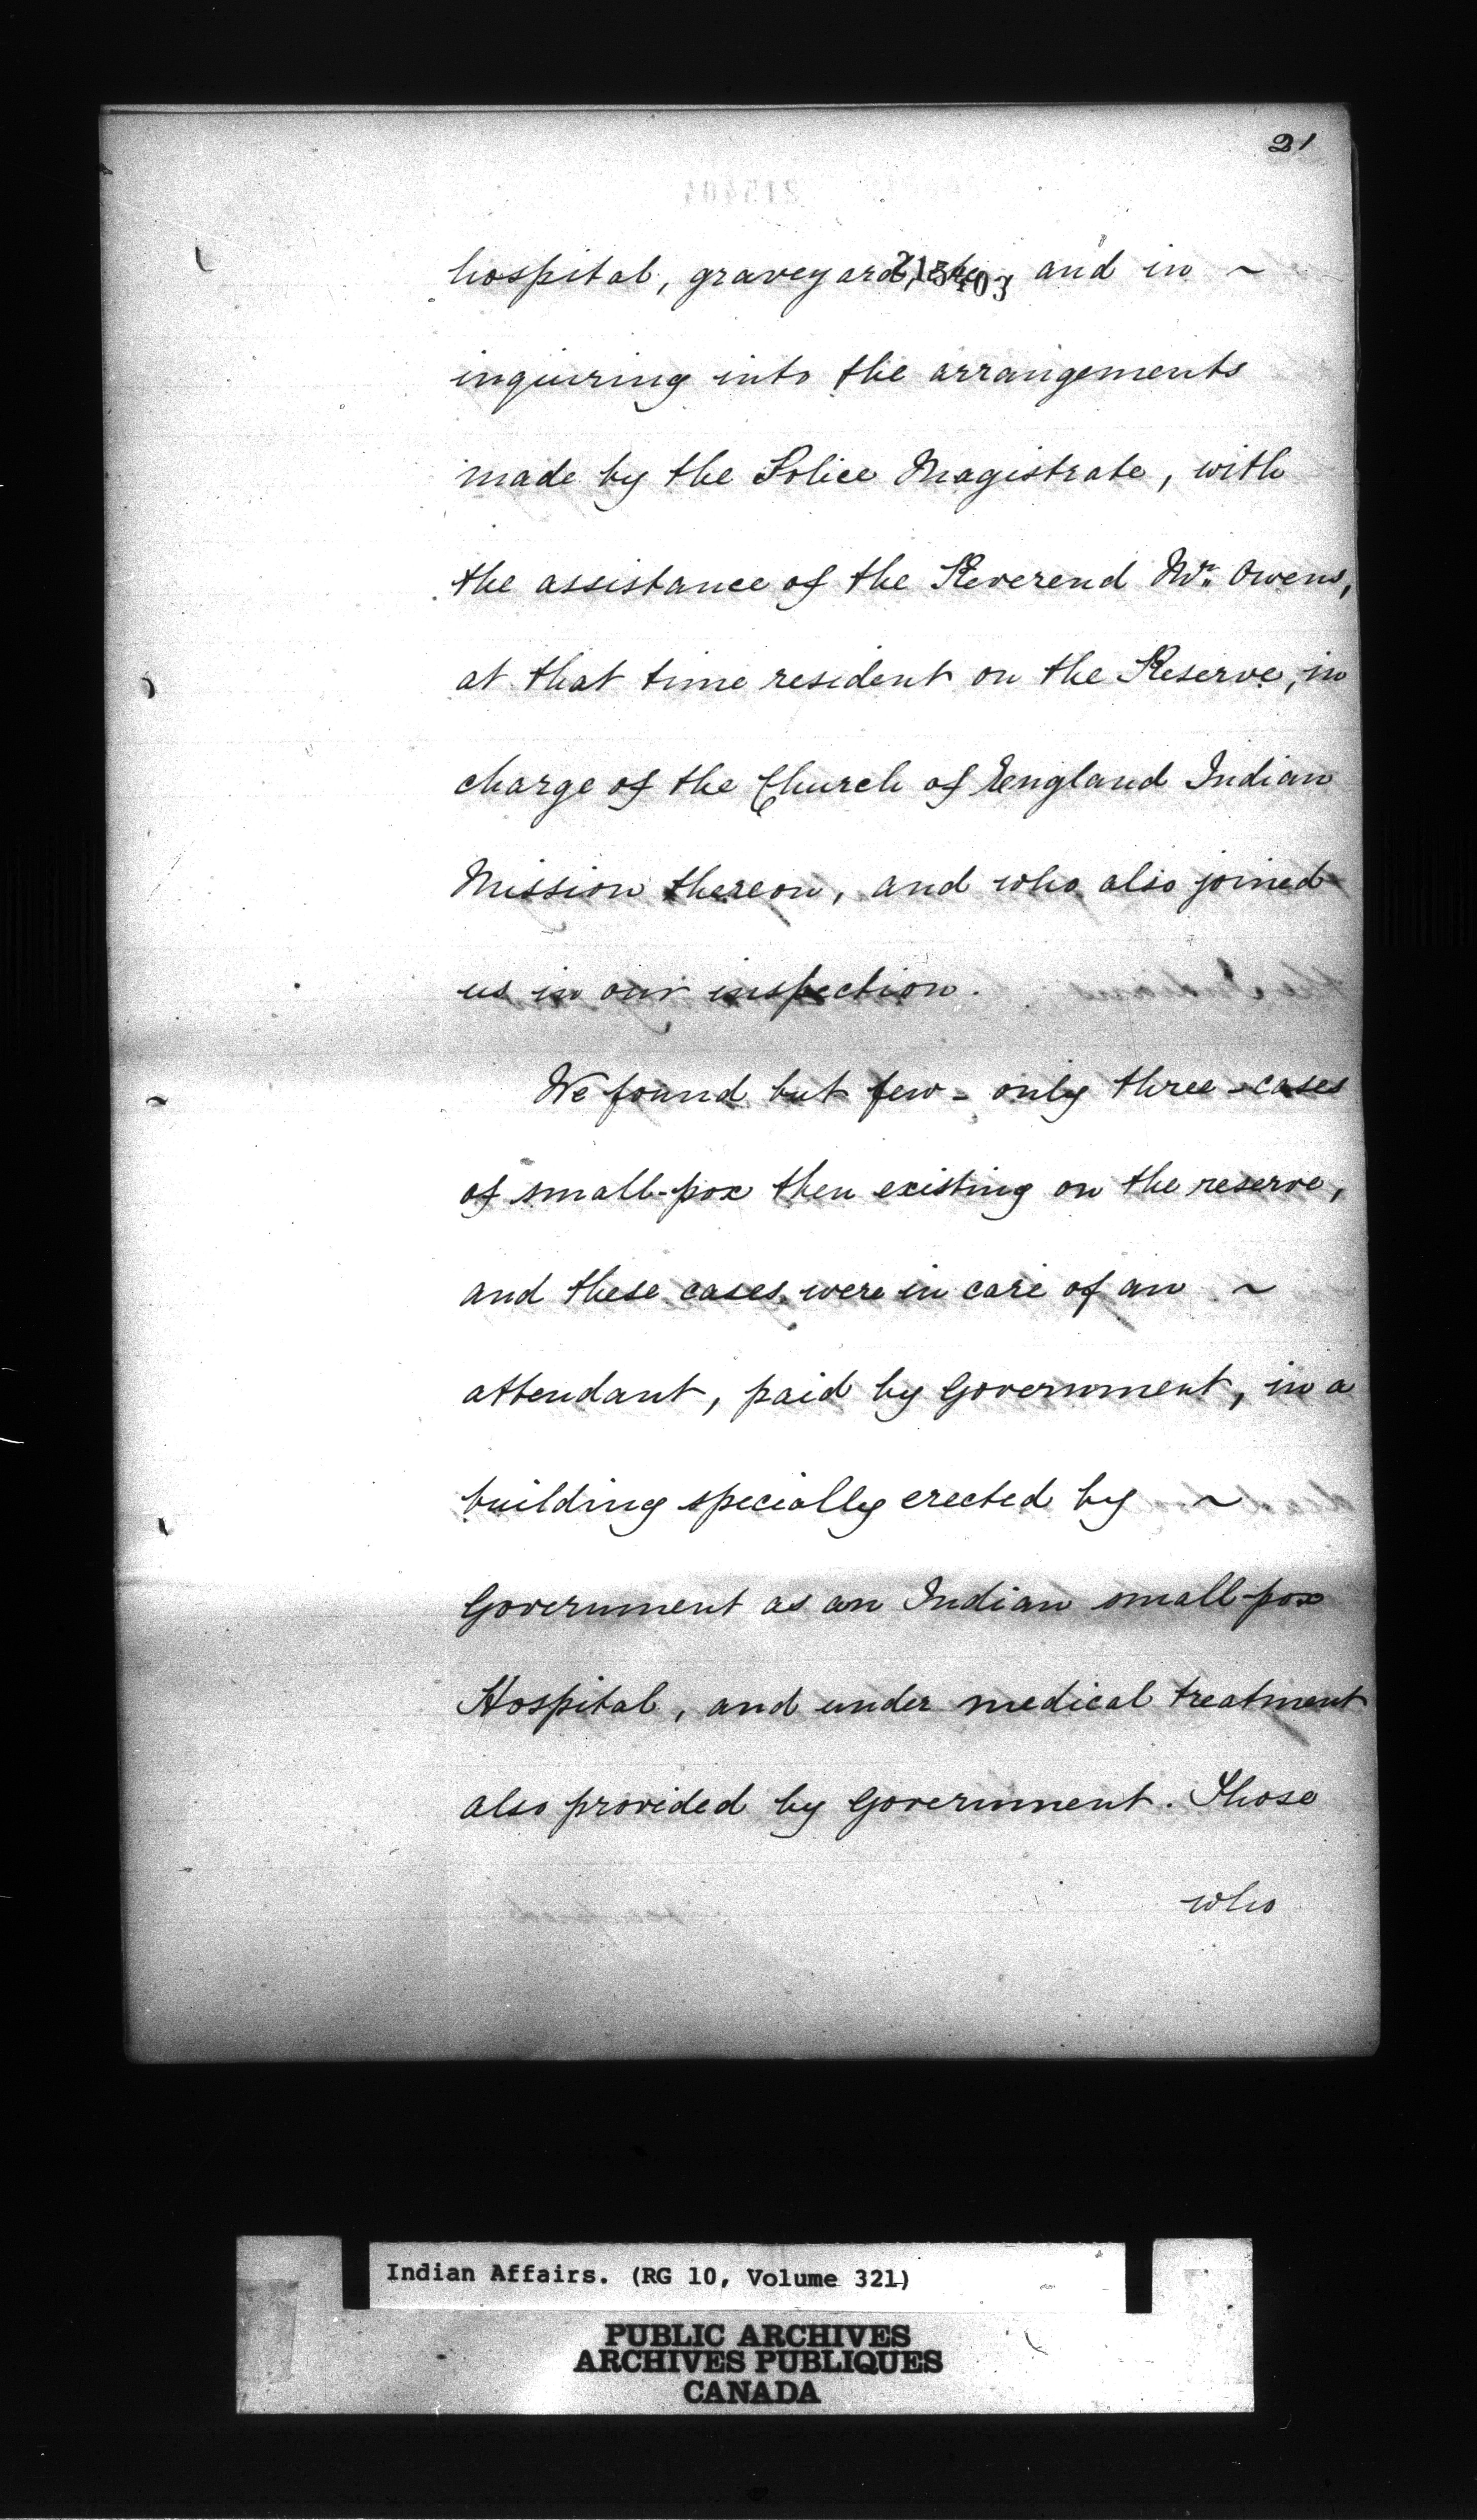 21
215403
hospital, graveyard, &c, and in ~
inquiring into the arrangements
made by the Police Magistrate, with
the assistance of the Reverend Mr. Owens,
at that time resident on the Reserve, in
charge of the Church of England Indian
Mission thereon, and who also joined
us in our inspection.
We found but few - only three - cases
of small-pox then existing on the reserve,
and these cases were in care of an ~
attendant, paid by Government, in a
building specially erected by ~
Government as an Indian small-pox
Hospital, and under medical treatment
also provided by Government. Those
who
Indian Affairs. (RG 10, Volume 321)
PUBLIC ARCHIVES
ARCHIVES PUBLIQUES
CANADA